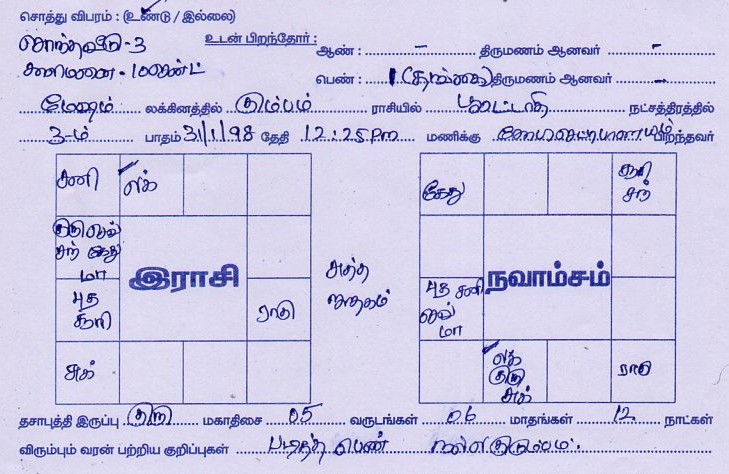 சொத்து விபரம் : (உண்டு / இல்லை)
சொந்தவீடு - 3 உடன் பிறந்தோர் : ஆண் : - திருமணம் ஆனவர் -
காலிமனை - 10 சென்ட் பெண் : 1 (தங்கை) திருமணம் ஆனவர் -
மேஷம் லக்கினத்தில் கும்பம் ராசியில் பூரட்டாதி நட்சத்திரத்தில்
3-ம் பாதம் 31/1/98 தேதி 12:25 Pm மணிக்கு பிறந்தவர்
சனி லக் கேது சூரி சந்
குரு சுக் சந் கேது மா
இராசி சுத்த ஜாதகம் நவாம்சம்
புத சூரி ராகு புத சனி சுக் மா
லக் குரு ராகு
தசாபுத்தி இருப்பு குரு மகாதிசை 05 வருடங்கள் 06 மாதங்கள் 12 நாட்கள்
விரும்பும் வரன் பற்றிய குறிப்புகள் படித்த பெண் நல்ல குடும்பம்.